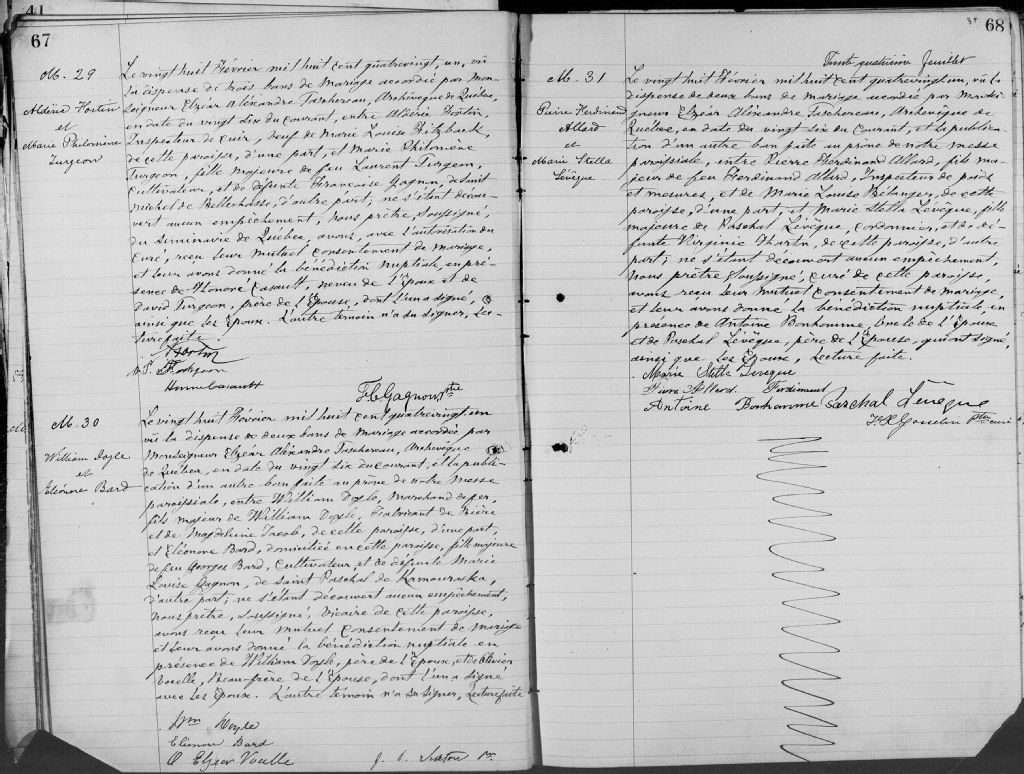 41
67
M. 29
Aldéric Fortin
et
Marie Philomène
Turgeon
Le vingt huit Février mil huit cent quatrevingt, un, vû
la dispense de trois bans de mariage accordée par Mon-
seigneur Elzéar Alexandre Taschereau, Archévêque de Québec,
en date du vingt six du courant, entre Aldéric Fortin,
Inspecteur de cuir, veuf de Marie Louise Fitzback,
de cette paroisse, d'une part, et Marie Philomène
Turgeon, fille majeure de feu Laurent Turgeon,
Cultivateur, et de défunte Françoise Gagnon, de Saint
Michel de Bellechasse, d'autre part; ne s'étant décou-
vert aucun empêchement, nous prêtre, soussigné,
du Séminaire de Québec, avons, avec l'autorisation du
Curé, reçu leur mutuel consentement de mariage,
et leur avons donné la bénédiction nuptiale, en pré-
sence de Honoré Casault, neveu de l'Epoux et de
David Turgeon, frère de l'Epouse, dont l'un a signé,
ainsi que les Epoux. L'autre témoin n'a su signer, Lec-
ture faite.
A Fortin
M. P. Turgeon
Honoré Casault
F. C. Gagnon Ptre
M. 30
William Doyle
et
Eléonore Bard
Le vingt huit Février mil huit cent quatrevingt un
vû la dispense de deux bans de mariage accordée par
Monseigneur Elzéar Alexandre Taschereau, Archévêque
de Québec, en date du vingt six du courant, et la publi-
cation d'un autre ban faite au prône de notre messe
paroissiale, entre William Doyle, Marchand de fer,
fils majeur de William Doyle, Fabricant de Bière
et de Magdeleine Jacob, de cette paroisse, d'une part,
et Eléonore Bard, domiciliée en cette paroisse, fille majeure
de feu Georges Bard, Cultivateur, et de défunte Marie
Louise Gagnon, de Saint Paschal de Kamouraska,
d'autre part; ne s'étant découvert aucun empêchement,
nous prêtre, soussigné, Vicaire de cette paroisse,
avons reçu leur mutuel consentement de mariage
et leur avons donné la bénédiction nuptiale en
présence de William Doyle, père de l'Epoux, et de Olivier
Voselle, Beau-frère de l'Epouse, dont l'un a signé
avec les Epoux. L'autre témoin n'a su signer, Lecture faite
Wm Doyle
Eléonore Bard
O Elzear Vocelle
68
Trente quatrième feuillet
M. 31
Pierre Ferdinand
Allard
et
Marie Stella
Lévêque
Le vingt huit Février mil huit cent quatrevingt un, vû la
dispense de deux bans de mariage accordée par Monsei-
gneur Elzéar Alexandre Taschereau, Archévêque de
Québec, en date du vingt six du courant, et la publica-
tion d'un autre ban faite au prône de notre messe
paroissiale, entre Pierre Ferdinand Allard, fils ma-
jeur de feu Ferdinand Allard, Inspecteur de poids
et mesures, et de Marie Louise Bélanger, de cette
paroisse, d'une part, et Marie Stella Lévêque, fille
majeure de Paschal Lévêque, Cordonnier, et de dé-
funte Virginie Martin, de cette paroisse, d'autre
part; ne s'étant découvert aucun empêchement,
nous prêtre, soussigné, curé de cette paroisse,
avons reçu leur mutuel consentement de mariage,
et leur avons donné la bénédiction nuptiale, en
présence de Antoine Bonhomme, Oncle de l'Epoux
et de Paschal Lévêque, père de l'Epouse, qui ont signé,
ainsi que les Epoux, Lecture faite.
Marie Stella Leveque
Pierre Allard Ferdinand
Antoine Bonhomme Paschal Lévêque
F. X. Gosselin Ptre curé